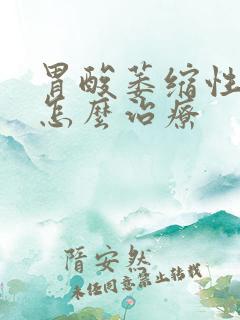 胃酸萎缩性
怎麽治疗
隋安然
未经同意禁止转载